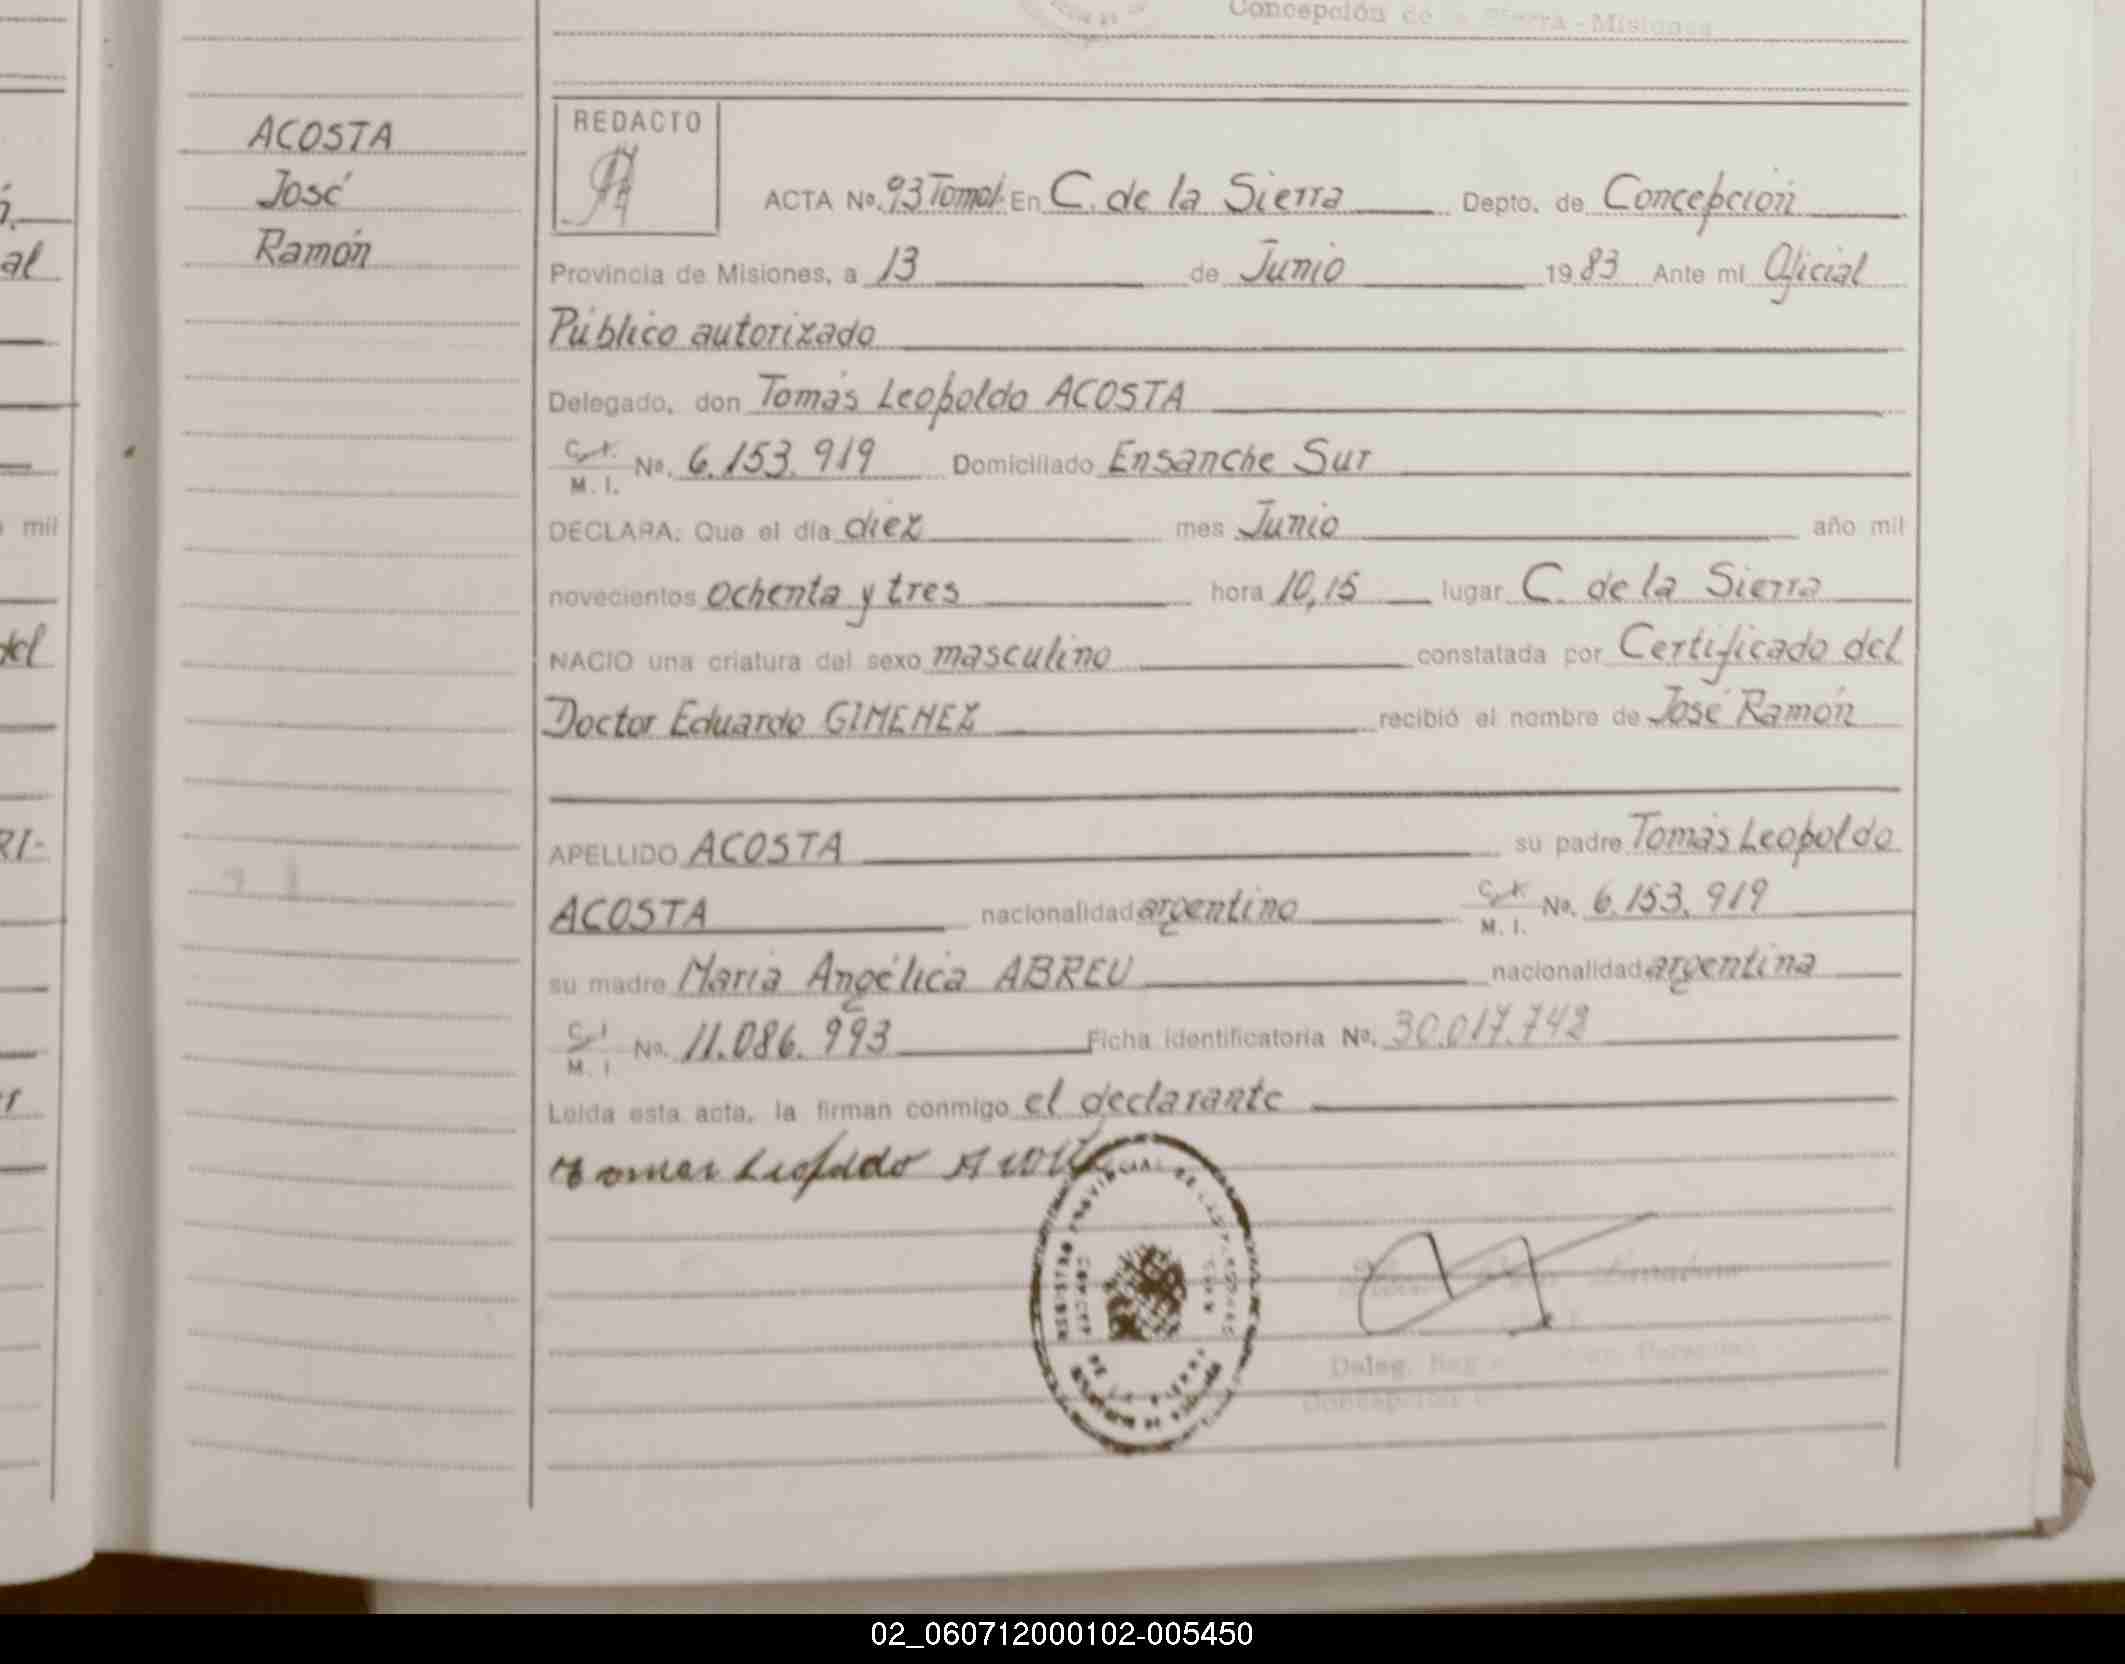 Concepción de la Sierra - Misiones
ACOSTA
José
Ramón
REDACTO
ACTA No. 93 Tomo I En C. de la Sierra Depto. de Concepción
Provincia de Misiones, a 13 de Junio 1983 Ante mí Oficial
Público autorizado
Delegado, don Tomás Leopoldo ACOSTA
C. I. / M. I. No. 6.153.919 Domiciliado Ensanche Sur
DECLARA: Que el día diez mes Junio año mil
novecientos ochenta y tres hora 10,15 lugar C. de la Sierra
NACIO una criatura del sexo masculino constatada por Certificado del
Doctor Eduardo GIMENEZ recibió el nombre de José Ramón
APELLIDO ACOSTA su padre Tomás Leopoldo
ACOSTA nacionalidad argentino C. I. / M. I. No. 6.153.919
su madre María Angélica ABREU nacionalidad argentina
C. I / M. I No. 11.086.993 Ficha identificatoria No. 30.017.742
Leída esta acta, la firman conmigo el declarante
Tomas Leopoldo Acosta
REGISTRO PROVINCIAL DE LAS PERSONAS
Deleg. Reg. Personas
Concepción
02_060712000102-005450